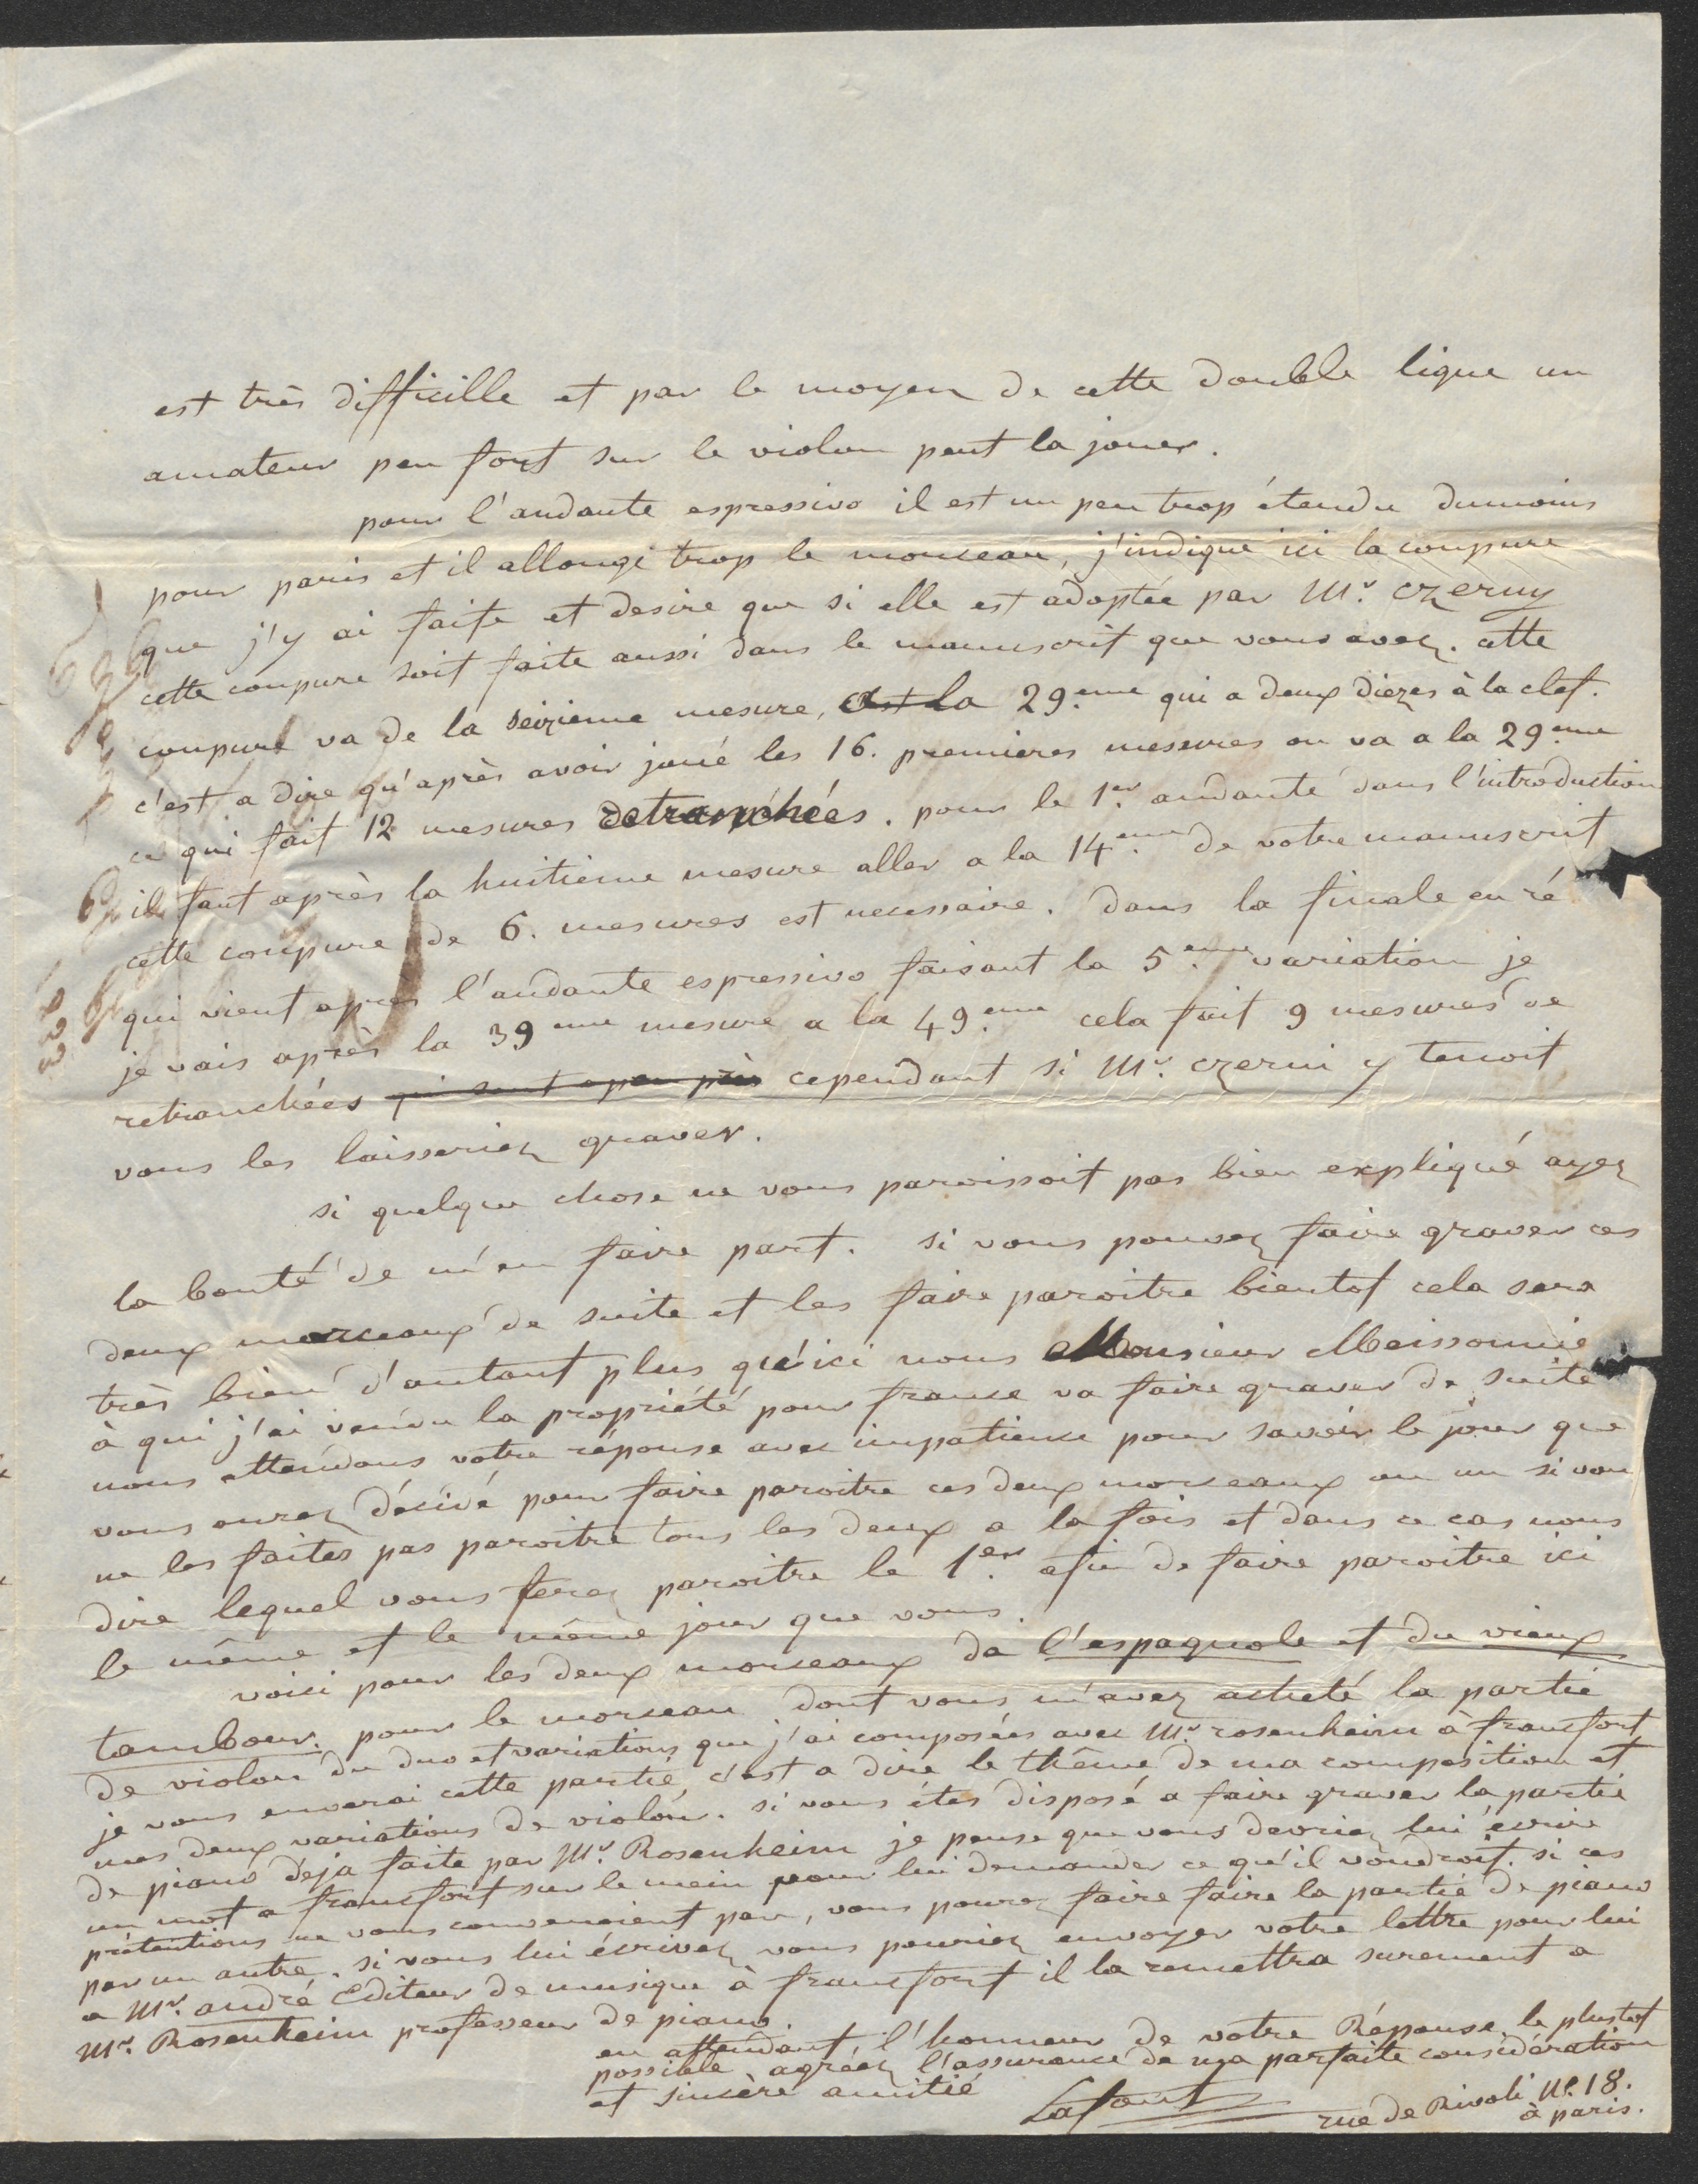 est très difficille et par le moyen de cette double ligne un
amateur peu fort sur le violon peut la jouer.
pour l'andante espressivo il est un peu trop étendu dumoins
pour paris et il allonge trop le morceau, j'indique ici la coupure
que j'y ai faite et desire que si elle est adoptée par Mr. czerny
cette coupure soit faite aussi dans le manuscrit que vous avez. cette
coupure va de la seizieme mesure, a la 29.eme qui a deux diezes à la clef.
c'est a dire qu'après avoir joué les 16. premieres mesures on va a la 29eme
ce qui fait 12 mesures detranchées. pour le 1er. andante dans l'introduction
il faut après la huitieme mesure aller a la 14eme. de votre manuscrit
cette coupure de 6. mesures est necessaire. dans la finale en ré
qui vient après l'andante espressivo faisant la 5eme. variation je
je vais après la 39eme mesure a la 49.eme cela fait 9 mesures de
retranchées qui sont a peu près cependant si Mr. czerni y tenoit
vous les laisseriez graver.
si quelque chose ne vous paroissoit pas bien expliqué ayez
la bonté de m'en faire part. si vous pouvez faire graver ces
deux morceaux de suite et les faire paroitre bientot cela sera
très bien d'autant plus qu'ici nous Monsieur Meissonnie
à qui j'ai vendu la propriété pour france va faire graver de suite
nous attendons votre réponse avec impatience pour savoir le jour que
vous aurez décidé pour faire paroitre ces deux morceaux ou un si vou
ne les faites pas paroitre tous les deux a la fois et dans ce cas nous
dire lequel vous ferez paroitre le 1er. afin de faire paroitre ici
le même et le même jour que vous.
voici pour les deux morceaux de l'espagnole et du vieux
tambour. pour le morceau dont vous m'avez acheté la partie
de violon du duo et variations que j'ai composées avec Mr. rosenheim à francfort
je vous enverai cette partie, c'est a dire le thême de ma composition et
mes deux variations de violon. si vous étes disposé a faire graver la partie
de piano déja faite par Mr. Rosenheim je pense que vous devriez lui écrire
un mot a francfort sur le mein pour lui demander ce qu'il voudroit. si ces
prétentions ne vous convenoient pas, vous pourez faire faire la partie de piano
par un autre. si vous lui écrivez vous pouriez envoyer votre lettre pour lui
a Mr. andré Editeur de musique à francfort il la remettra surement a
Mr. Rosenheim professeur de piano.
en attendant l'honneur de votre Réponse le plustot
possible agréez l'assurance de ma parfaite considération
et sincère amitié
Lafont
rue de Rivoli No. 18.
à paris.